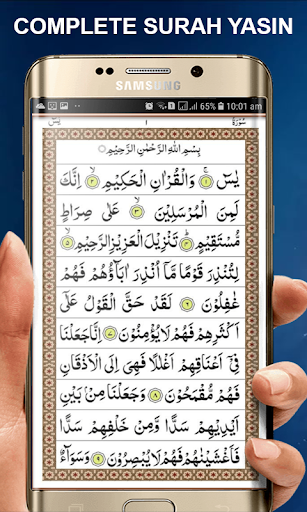 COMPLETE SURAH YASIN
SAMSUNG
65% 10:01 am
يٰسٓ
١
سُوْرَةُ
بِسْمِ اللّٰهِ الرَّحْمٰنِ الرَّحِيْمِ
يٰسٓ ۚ ﴿۱﴾ وَالْقُرْاٰنِ الْحَكِيْمِ ۙ ﴿۲﴾ اِنَّكَ
لَمِنَ الْمُرْسَلِيْنَ ۙ ﴿۳﴾ عَلٰى صِرَاطٍ
مُّسْتَقِيْمٍ ؕ ﴿۴﴾ تَنْزِيْلَ الْعَزِيْزِ الرَّحِيْمِ ۙ ﴿۵﴾
لِتُنْذِرَ قَوْمًا مَّاۤ اُنْذِرَ اٰبَآؤُهُمْ فَهُمْ
غٰفِلُوْنَ ﴿۶﴾ لَقَدْ حَقَّ الْقَوْلُ عَلٰۤى
اَكْثَرِهِمْ فَهُمْ لَا يُؤْمِنُوْنَ ﴿۷﴾ اِنَّا جَعَلْنَا
فِيْۤ اَعْنَاقِهِمْ اَغْلٰلًا فَهِىَ اِلَى الْاَذْقَانِ
فَهُمْ مُّقْمَحُوْنَ ﴿۸﴾ وَجَعَلْنَا مِنْۢ بَيْنِ
اَيْدِيْهِمْ سَدًّا وَّمِنْ خَلْفِهِمْ سَدًّا
فَاَغْشَيْنٰهُمْ فَهُمْ لَا يُبْصِرُوْنَ ﴿۹﴾ وَسَوَآءٌ